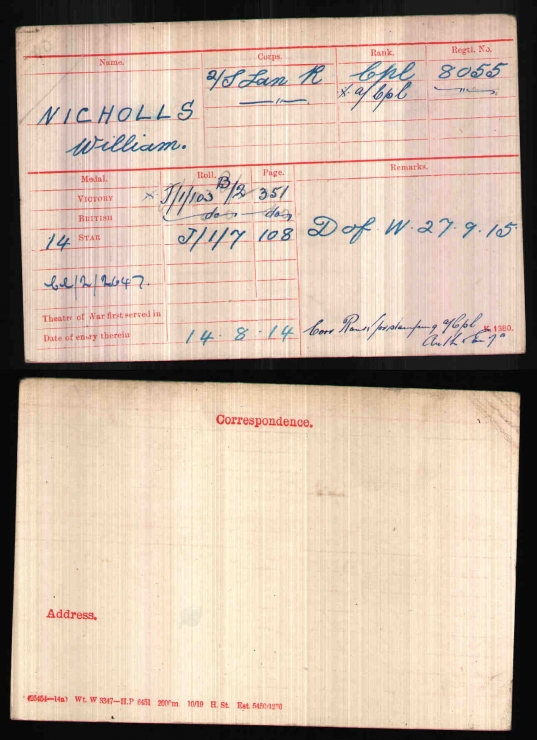 Name. Corps. Rank. Regtl. No.
2/S Lan R Cpl 8055
—"— x a/Cpl —"—
NICHOLLS
William.
Medal. Roll. Page. Remarks.
VICTORY x J/1/103 B/2 351
BRITISH do do
14 STAR J/1/7 108 D of W. 27.9.15
2647.
Theatre of War first served in
Date of entry therein 14. 8. 14
a/Cpl K 1380.
Correspondence.
Address.
Wt. W 5347—H.P 6451 200m 10/19 H. St.